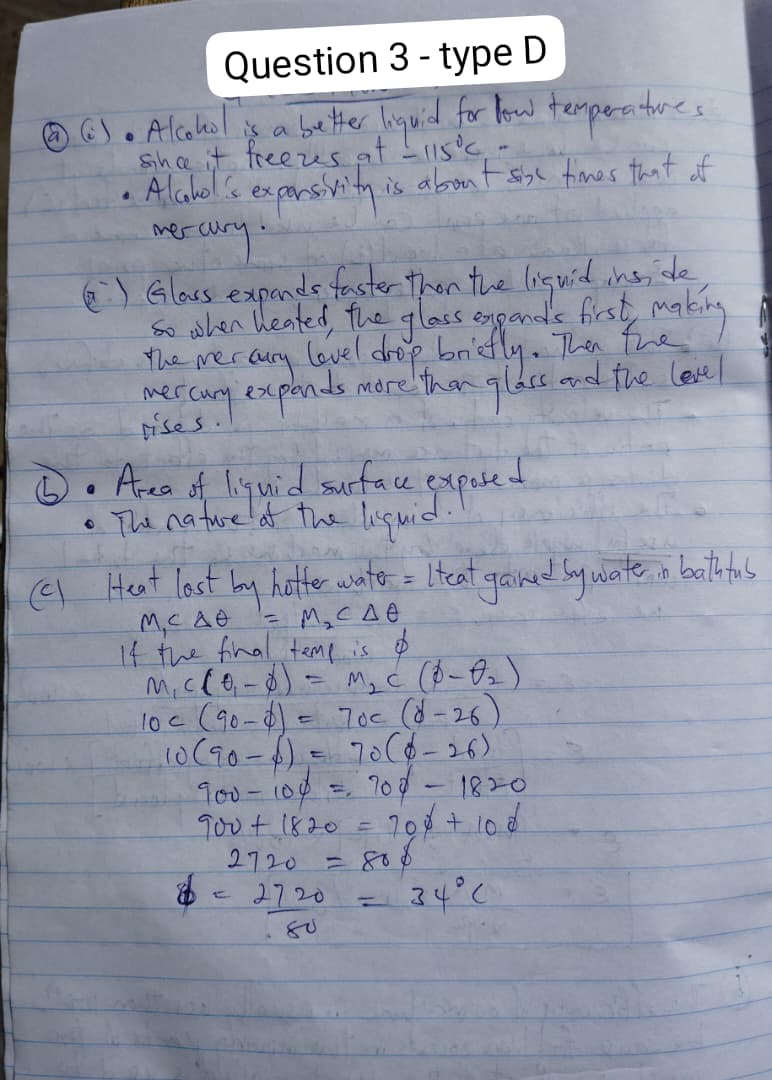 Question 3 - type D
(a) (i) • Alcohol is a better liquid for low temperatures
since it freezes at -115°C.
• Alcohol's expansivity is about six times that of
mercury.
(ii) Glass expands faster than the liquid inside,
so when heated, the glass expands first, making
the mercury level drop briefly. Then the
mercury expands more than glass and the level
rises.
(b) • Area of liquid surface exposed
• The nature of the liquid.
(c) Heat lost by hotter water = Heat gained by water in bathtub
M₁C Δθ = M₂C Δθ
If the final temp is φ
M₁C(θ₁-φ) = M₂C (φ-θ₂)
10C (90-φ) = 70C (φ-26)
10(90-φ) = 70(φ-26)
900 - 10φ = 70φ - 1820
900 + 1820 = 70φ + 10φ
2720 = 80φ
φ = 2720 = 34°C
80